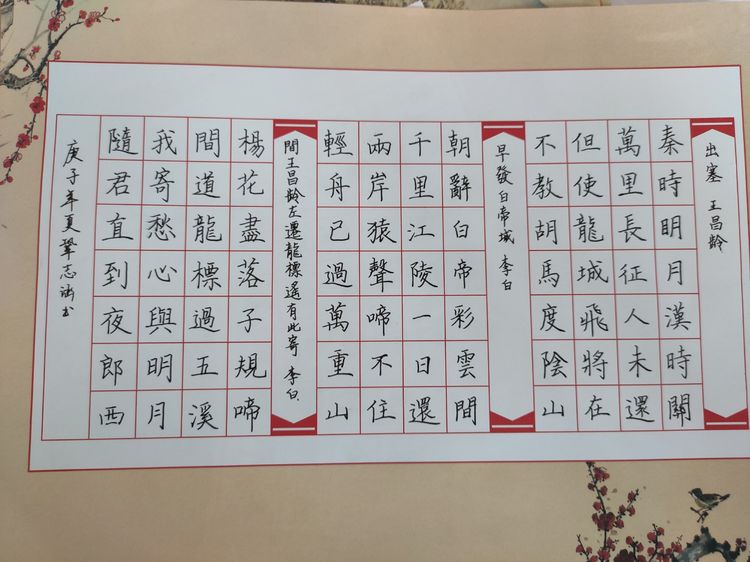 出塞 王昌齡
秦時眀月漢時關
萬里長征人未還
但使龍城飛將在
不教胡馬度陰山
早發白帝城 李白
朝辭白帝彩雲間
千里江陵一日還
兩岸猿聲啼不住
輕舟已過萬重山
聞王昌齡左遷龍標遙有此寄 李白
楊花盡落子規啼
聞道龍標過五溪
我寄愁心與明月
隨君直到夜郎西
庚子年夏鞏志书